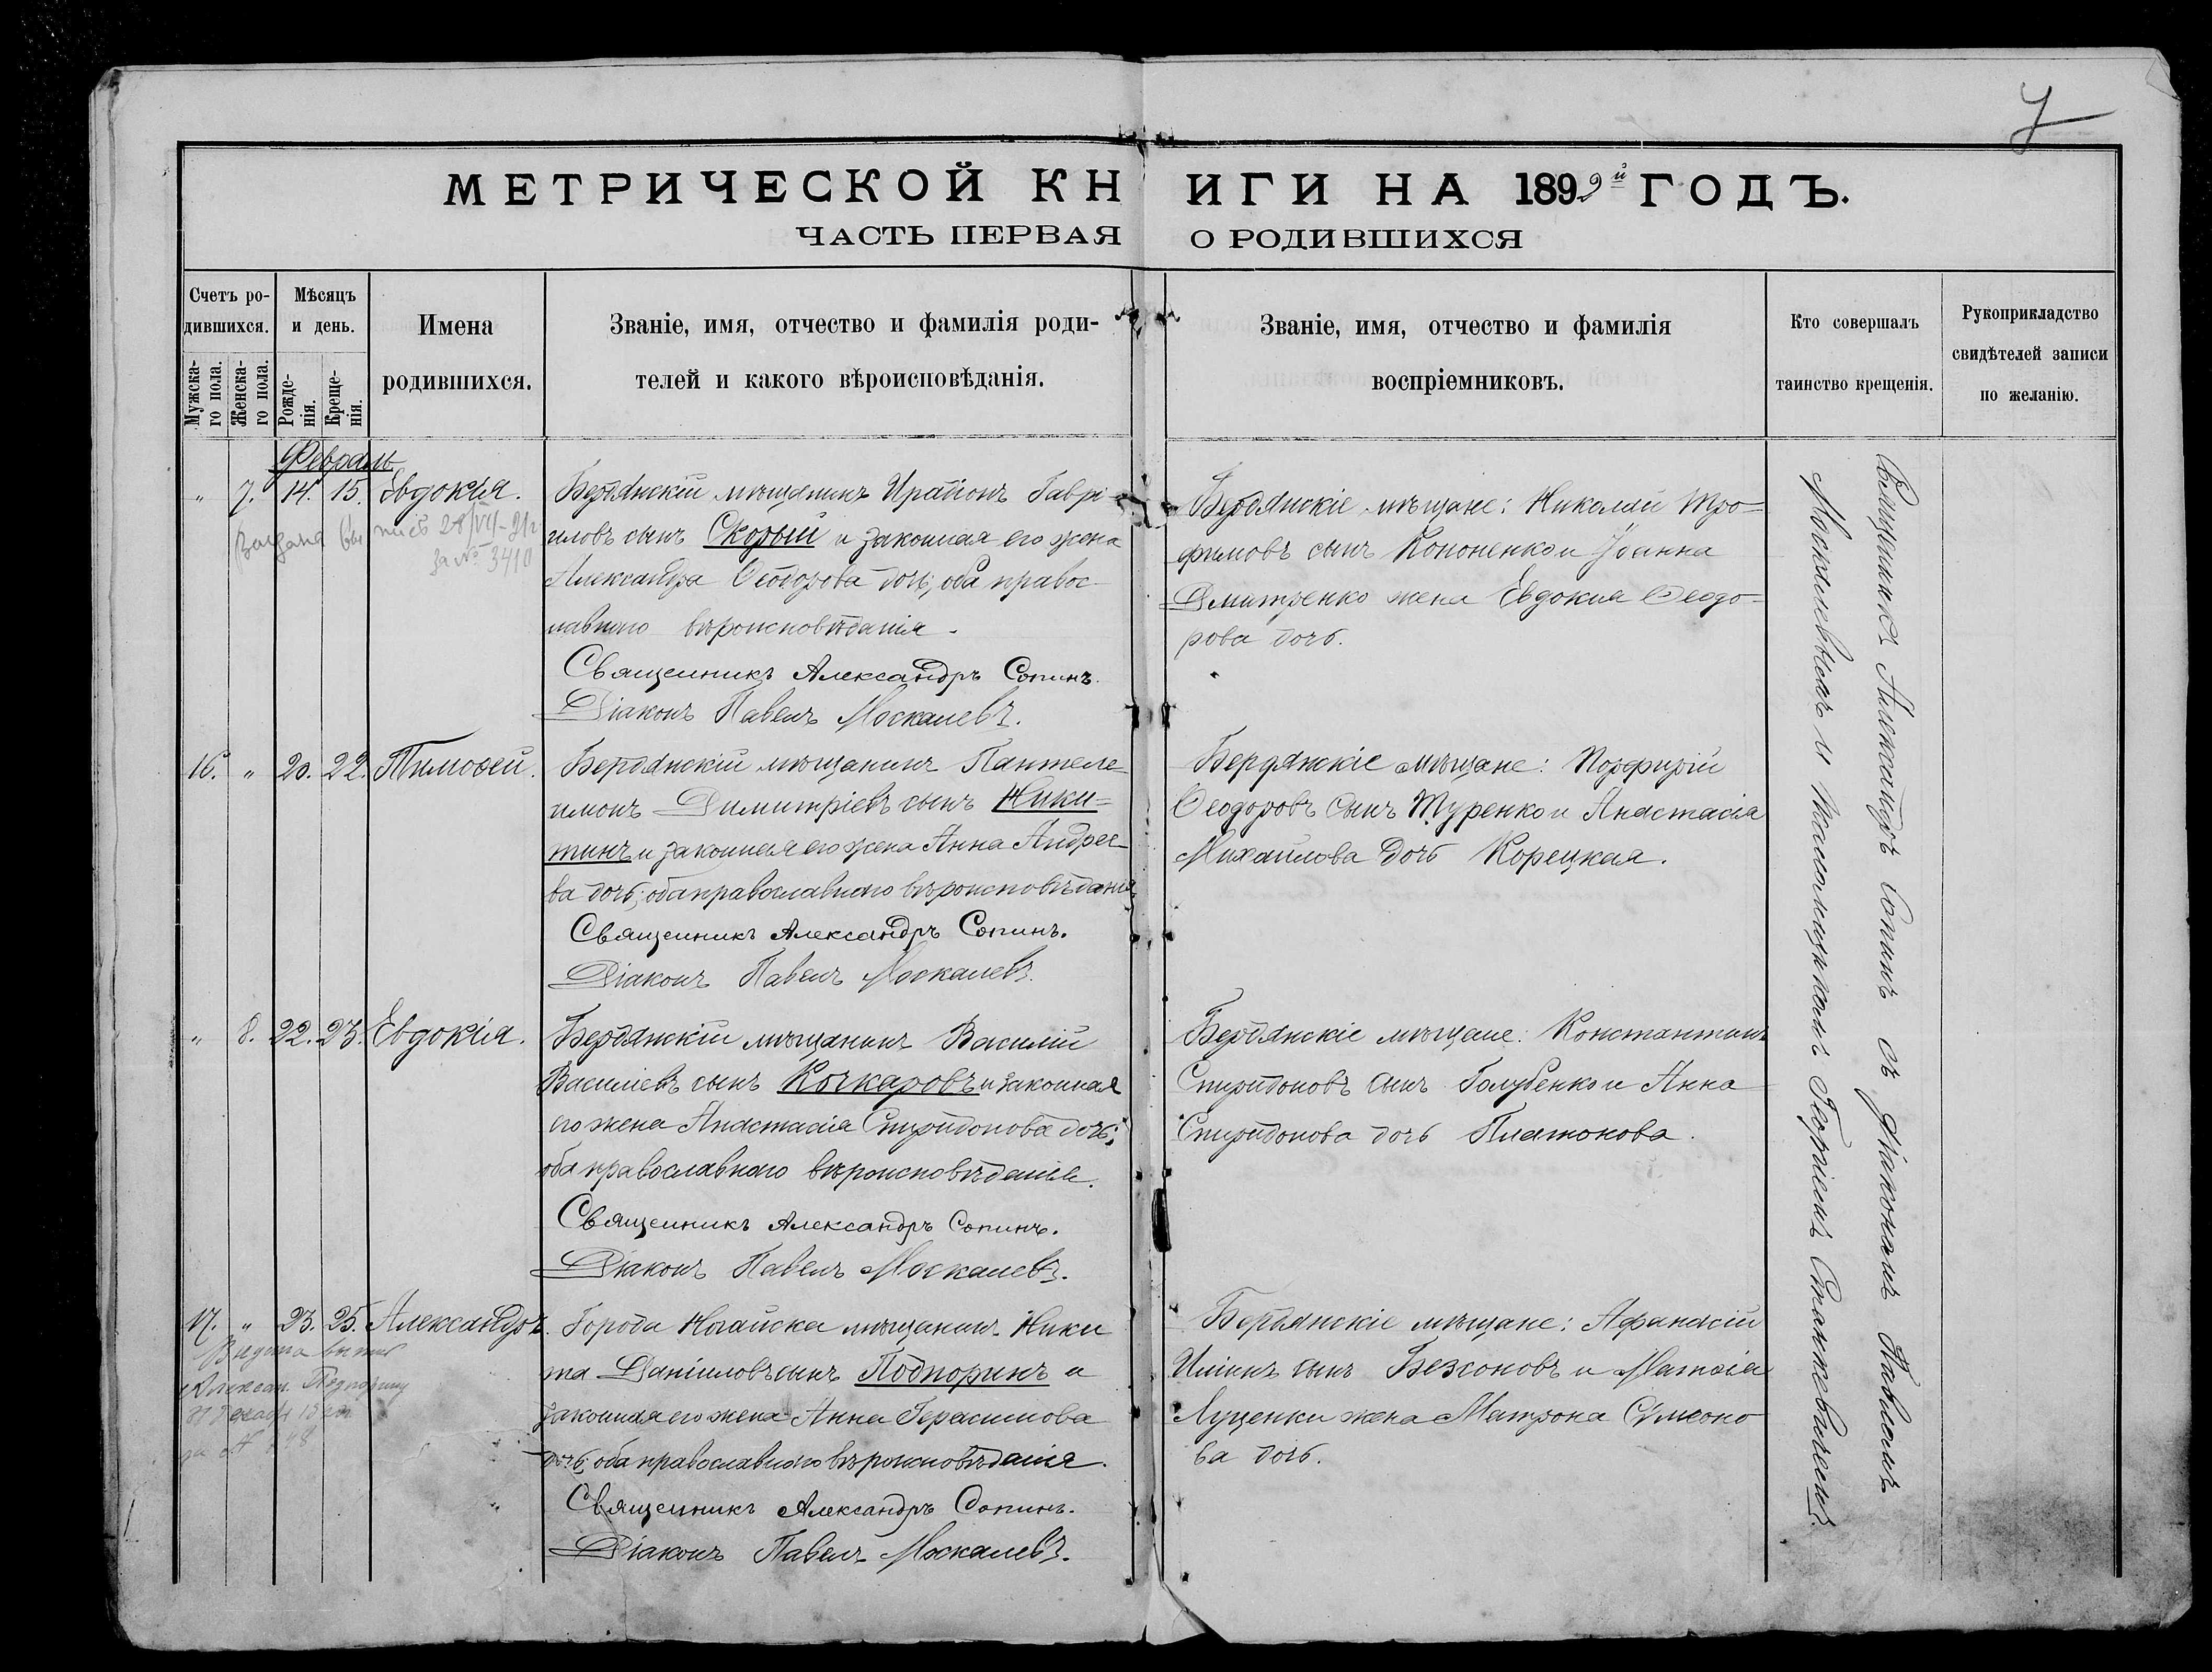 7
МЕТРИЧЕСКОЙ КНИГИ НА 1899й ГОДЪ.
ЧАСТЬ ПЕРВАЯ О РОДИВШИХСЯ
Счетъ ро-
дившихся.
Мужска-
го пола.
Женска-
го пола.
Мѣсяцъ
и день.
Рожде-
нія.
Креще-
нія.
Имена
родившихся.
Званіе, имя, отчество и фамилія роди-
телей и какого вѣроисповѣданія.
Званіе, имя, отчество и фамилія
воспріемниковъ.
Кто совершалъ
таинство крещенія.
Рукоприкладство
свидѣтелей записи
по желанію.
Февраль
" 7. 14. 15. Евдокія.
за № 3410
Бердянскій мѣщанинъ Ираіонъ Гаврі-
иловъ сынъ Скорый и законная его жена
Александра Ѳеодорова дочь, оба правос-
лавнаго вѣроисповѣданія.
Священникъ Александръ Сопинъ.
Діаконъ Павелъ Москалевъ.
Бердянскіе мѣщане: Николай Тро=
фимовъ сынъ Кононенко и Іоанна
Дмитренко жена Евдокія Ѳеодо=
рова дочь.
16. " 20. 22. Тимоѳей.
Бердянскій мѣщанинъ Пантеле-
имонъ Димитріевъ сынъ Ники=
тинъ и законная его жена Анна Андрее-
ва дочь; оба православнаго вѣроисповѣданія
Священникъ Александръ Сопинъ.
Діаконъ Павелъ Москалевъ.
Бердянскіе мѣщане: Порфирій
Ѳеодоровъ сынъ Туренко и Анастасія
Михайлова дочь Корецкая.
" 8. 22. 23. Евдокія.
Бердянскій мѣщанинъ Василій
Василіевъ сынъ Кочкаровъ и законная
его жена Анастасія Спиридонова дочь;
оба православнаго вѣроисповѣданія.
Священникъ Александръ Сопинъ.
Діаконъ Павелъ Москалевъ.
Бердянскіе мѣщане: Константинъ
Спиридоновъ сынъ Голубенко и Анна
Спиридонова дочь Платонова.
17. " 23. 25. Александръ.
Города Ногайска мѣщанинъ Ники
та Даніиловъ сынъ Подпоринъ и
законная его жена Анна Герасимова
дочь; оба православнаго вѣроисповѣданія.
Священникъ Александръ Сопинъ.
Діаконъ Павелъ Москалевъ.
Бердянскіе мѣщане: Афанасій
Илiинъ сынъ Безсоновъ и Матѳія
Луценки жена Матрона Сѵмеоно
ва дочь.
Священникъ Александръ Сопинъ съ діакономъ Павломъ
Москалевымъ и псаломщикомъ Георгіемъ Станкевичемъ.